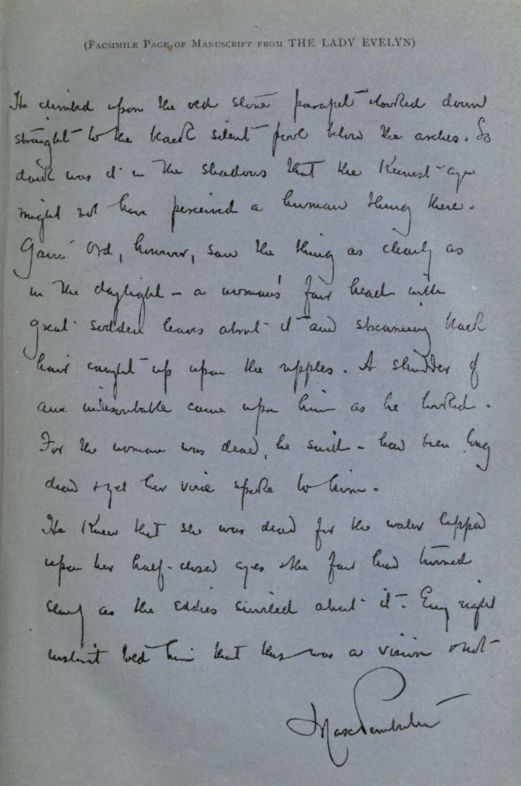 (FACSIMILE PAGE OF MANUSCRIPT FROM THE LADY EVELYN)
He climbed upon the old stone parapet & looked down
straight to the black silent pool below the arches. So
dark was it in the shadows that the keenest eye
might not have perceived a human thing there.
Gavin Ord, however, saw the thing as clearly as
in the daylight – a woman's fair head with
great sodden leaves about it and streaming black
hair caught up upon the ripples. A shudder of
awe indescribable came upon him as he looked.
For the woman was dead, he said – had been long
dead & yet her voice spoke to him.
He knew that she was dead for the water lapped
upon her half-closed eyes & the fair head turned
slowly as the eddies swirled about it. Every right
instinct told him that this was a vision & not
Max Pemberton